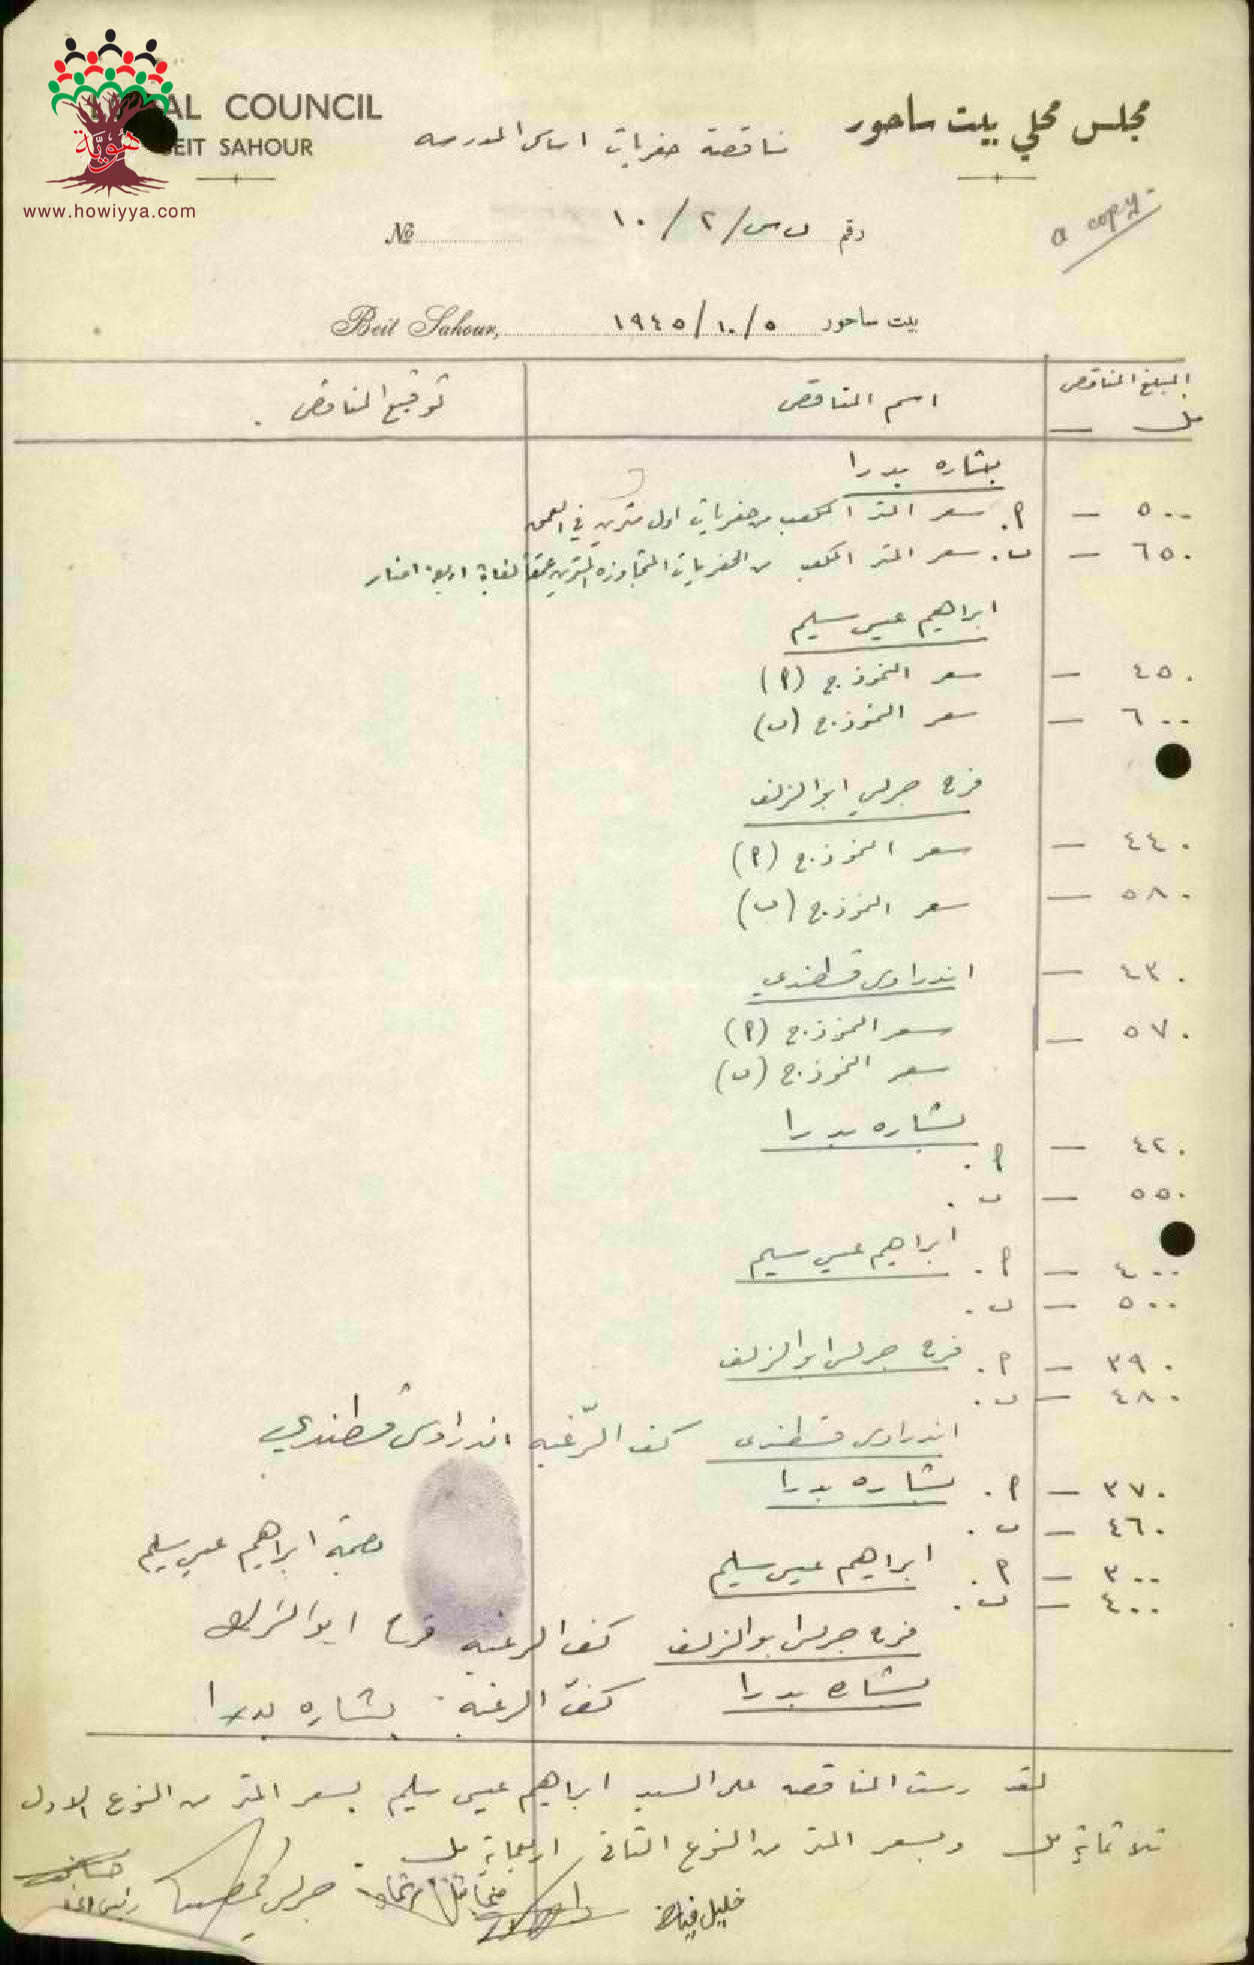 LOCAL COUNCIL
BEIT SAHOUR
مجلس محلي بيت ساحور
مناقصة حفريات اساس المدرسه
هوية
www.howiyya.com
a copy
№ رقم ب س/٢/١٠
Beit Sahour, بيت ساحور ١٩٤٥/١٠/٥
المبلغ المناقص
مل
اسم المناقص
توقيع المناقص
بشاره بدرا
٥٠٠ — أ. سعر المتر المكعب من حفريات اول مترين في العمق
٦٥٠ — ب. سعر المتر المكعب من الحفريات المتجاوزه المترين عمقا لغاية اربعة امتار
ابراهيم عيسى سليم
٤٥٠ — سعر النموذج (أ)
٦٠٠ — سعر النموذج (ب)
فرح جريس ابو الزلف
٤٤٠ — سعر النموذج (أ)
٥٨٠ — سعر النموذج (ب)
٤٣٠ — اندراوس قسطندي
٥٧٠ — سعر النموذج (أ)
سعر النموذج (ب)
بشاره بدرا
٤٢٠ — أ.
٥٥٠ — ب.
ابراهيم عيسى سليم
٤٠٠ — أ.
٥٠٠ — ب.
٣٩٠ — أ. فرح جريس ابو الزلف
٤٨٠ — ب.
اندراوس قسطندي كف الرّغبه اندراوس قسطندي
٣٧٠ — أ. بشاره بدرا
٤٦٠ — ب.
بصمة ابراهيم عيسى سليم
٣٠٠ — أ. ابراهيم عيسى سليم
٤٠٠ — ب.
فرح جريس ابو الزلف كف الرغبه فرح ابو الزلف
بشاره بدرا كفّ الرغبة. بشاره بدرا
لقد رست المناقصه على السيد ابراهيم عيسى سليم بسعر المتر من النوع الاول
ثلاثماية مل وبسعر المتر من النوع الثاني اربعماية مل.
خليل قياض
جريس
رئيس المجلس